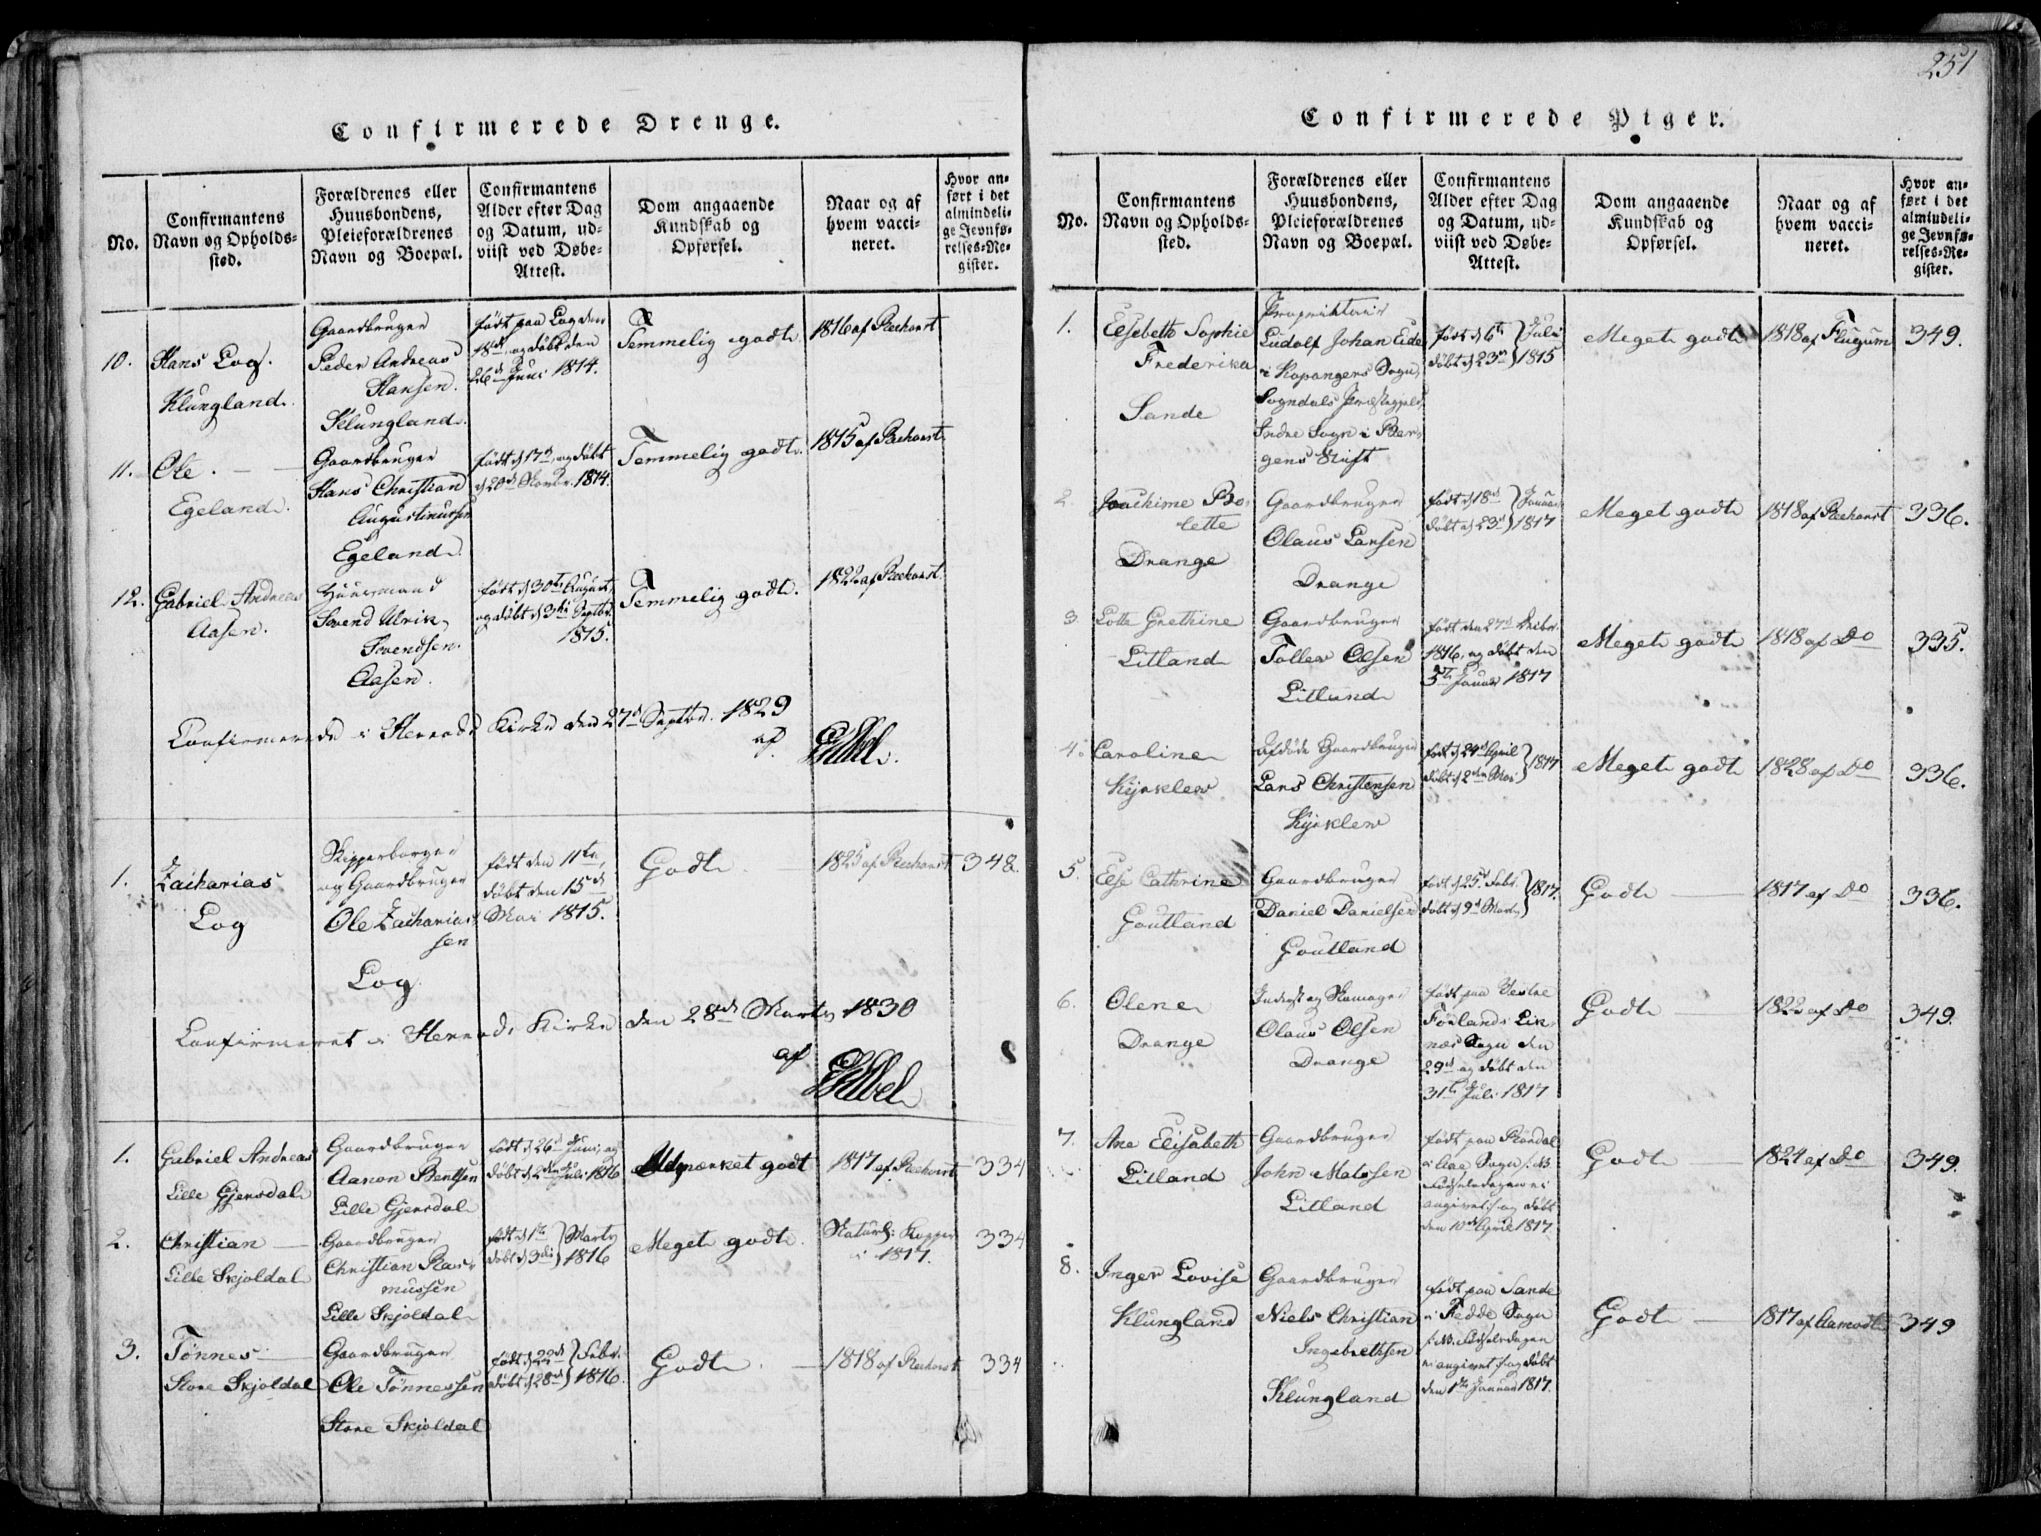 251
Confirmerede Drenge.
No.
Confirmantens
Navn og Opholds-
sted.
Forældrenes eller
Huusbondens,
Pleieforældrenes
Navn og Boepæl.
Confirmantens
Alder efter Dag
og Datum, ud-
viist ved Døbe-
Attest.
Dom angaaende
Kundskab og
Opførsel.
Naar og af
hvem vacci-
neret.
Hvor an-
ført i det
almindeli-
ge Jevnfø-
relses-Re-
gister.
10.
Hans Log.
Klungland.
Gaardbruger
Peder Andreas
Hansen.
Klungland.
født paa Log den
18de, og døbt den
26de Juni 1814.
Temmelig godt.
1816 af Reehorst
11.
Ole.
Egeland.
Gaardbruger
Hans Christian
Augustinussen
Egeland.
født d 17de, og døbt
d 20de Novbr. 1814.
Temmelig godt.
1815 af Reehorst
12.
Gabriel Andreas
Aasen.
Huusmand
Svend Ulrik
Svendsen.
Aasen.
født d 30te August,
og døbt d 3die Septbr.
1815.
Temmelig godt.
1822 af Reehorst.
Confirmerede i Herrads Kirke den 27de Septbr. 1829
af
1.
Zacharias
Log
Skipperborger
og Gaardbruger
Ole Zacharias-
sen
Log
født den 11te,
døbt den 15de
Mai 1815.
Godt
1825 af Reehorst
348.
Confirmeret i Herrads Kirke den 28de Marts 1830
af
1.
Gabriel Andreas
Lille Gjersdal
Gaardbruger
Aanon Bentsen
Lille Gjersdal
født d 26de Juni, og
døbt d 2den Juli 1816
Udmærket godt
1817 af Reehorst
334
2.
Christian
Lille Skjoldal
Gaardbruger
Christian Ras-
mussen
Lille Skjoldal
født d 1te
døbt d 3die
Marts
1816
Meget godt.
Naturl: Kopper
i 1817.
334
3.
Tønnes
Store Skjoldal
Gaardbruger
Ole Tønnessen
Store Skjoldal
født d 22de
døbt d 28de
Febr.
1816.
Godt.
1818 af Reehorst
334
Confirmerede Piger.
No.
Confirmantens
Navn og Opholds-
sted.
Forældrenes eller
Huusbondens,
Pleieforældrenes
Navn og Boepæl.
Confirmantens
Alder efter Dag
og Datum, ud-
viist ved Døbe-
Attest.
Dom angaaende
Kundskab og
Opførsel.
Naar og af
hvem vacci-
neret.
Hvor an-
ført i det
almindeli-
ge Jevnfø-
relses-Re-
gister.
1.
Elsebeth Sophie
Frederika
Sande
Proprietair
Ludolf Johan Eide
i Kopangers Sogn,
Sogndals Præstegjeld,
Indre Sogn i Ber-
gens Stift
født d 6te
døbt d 23de
Juli
1815
Meget godt
1818 af Flugum
349.
2.
Joachime Bo-
lette
Drange
Gaardbruger
Olaus Larsen
Drange
født d 18de
døbt d 23de
Januar
1817
Meget godt
1818 af Reehorst
336.
3
Lotte Grethine
Litland
Gaardbruger
Tollev Olsen
Litland
født den 27de Decbr.
1816, og døbt den
5te Januar 1817
Meget godt
1818 af Do
335.
4.
Caroline
Kjørklev
afdøde Gaardbruger
Lars Christensen
Kjørklev
født d 24de April
døbt d 2den Mai
1817
Meget godt
1828 af Do
336.
5.
Else Cathrine
Goutland
Gaardbruger
Daniel Danielsen
Goutland
født d 25de Febr.
døbt d 9de Marts
1817.
Godt
1817 af Do
336.
6.
Olene
Drange
Inderst og Skomager
Olaus Olsen
Drange
født paa Vestre
Førland i Lik-
næs Sogn den
29de og døbt den
31te Juli 1817
Godt
1822 af Do
349.
7.
Ane Elisabeth
Litland
Gaardbruger
John Matssen
Litland
født paa Rørdal
i Aae Sogn /: NB.
Fødselsdagen ei
angivet :/ og døbt
den 10de April 1817.
Godt
1824 af Do
349.
8.
Inger Lovise
Klungland
Gaardbruger
Niels Christian
Ingebrethsen
Klungland
født paa Sande
i Fedde Sogn
/: NB. Fødselsdagen
ei angivet :/ og døbt
den 1te Januar 1817.
Godt
1817 af Aamodt
349